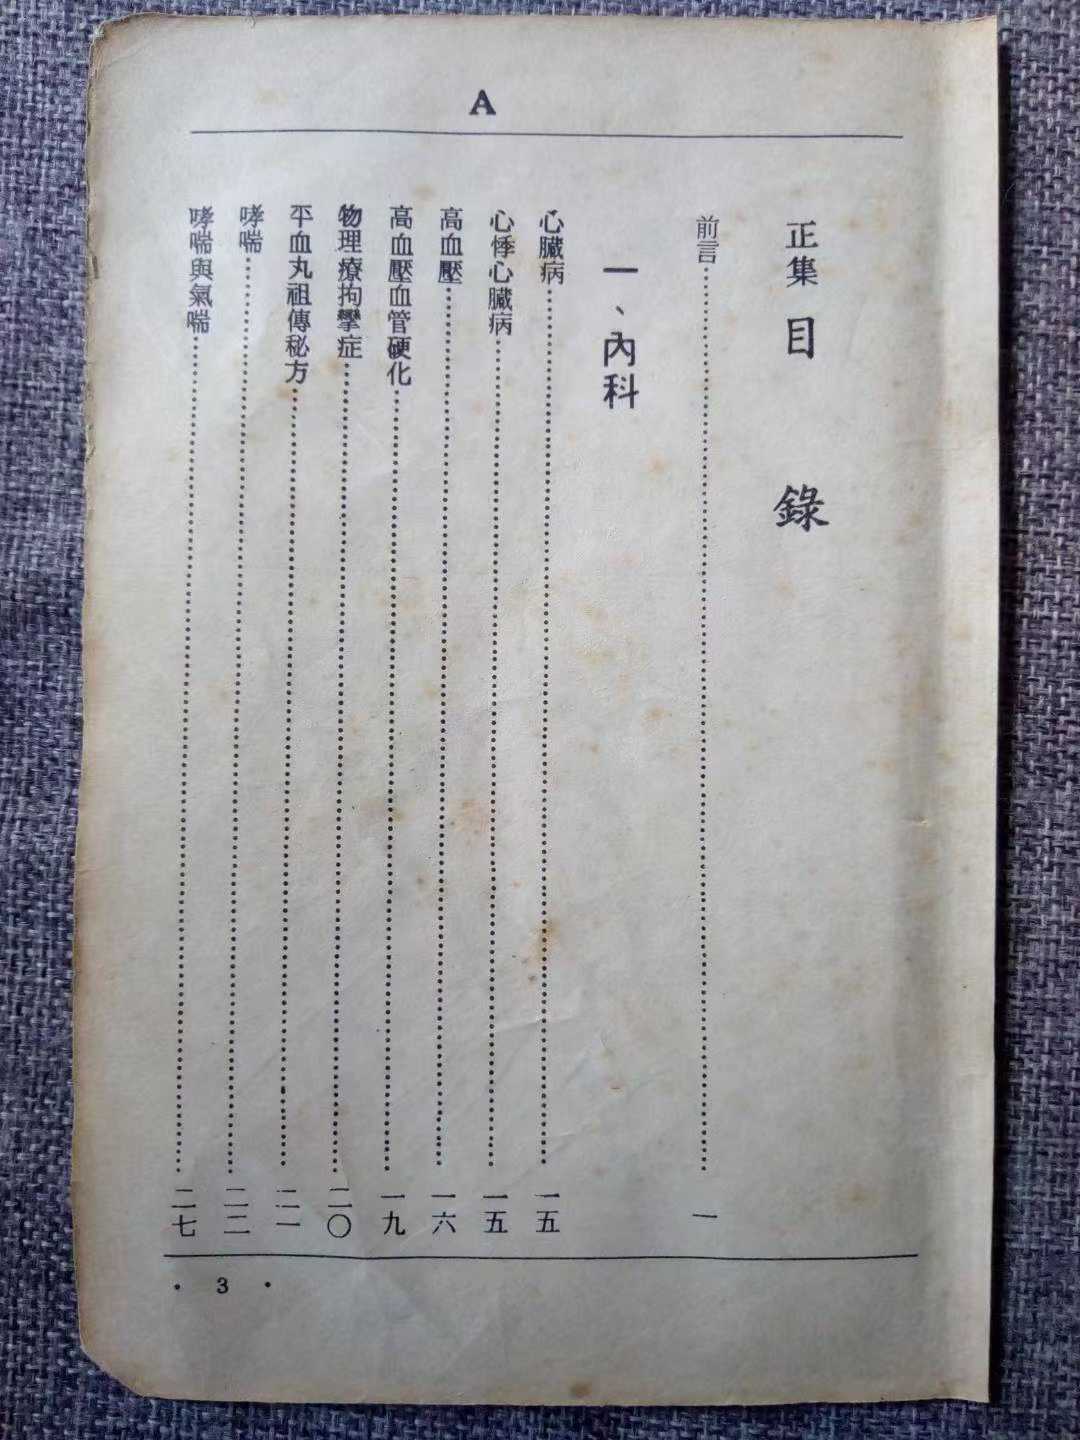 A
正集 目 錄
前言……一
一、內科
心臟病……一五
心悸心臟病……一五
高血壓……一六
高血壓血管硬化……一九
物理療拘攣症……二〇
平血丸祖傳秘方……二一
哮喘……二二
哮喘與氣喘……二七
· 3 ·